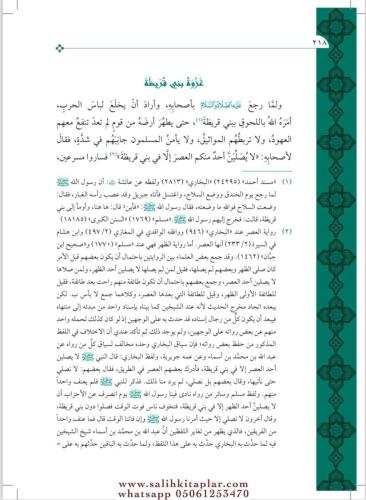 ٢١٨
غزوة بني قريظة
ولمّا رجع عليه الصلاة والسلام بأصحابه، وأراد أنْ يخلَعَ لباسَ الحربِ،
أمرَهُ اللهُ باللحوقِ ببني قريظةَ(١)، حتى يطهِّرَ أرضَهُ من قومٍ لم تعدْ تنفعُ معهم
العهودُ، ولا تربطُهم المواثيقُ، ولا يأمنُ المسلمون جانبَهم في شدَّةٍ، فقالَ
لأصحابِهِ: «لا يُصلِّيَنَّ أحدٌ منكم العصرَ إلَّا في بني قريظةَ»(٢) فساروا مسرعين،
(١) «مسند أحمد» (٢٤٢٩٥) «البخاري» (٢٨١٣) ولفظه عن عائشة: أن رسول الله ﷺ
لما رجع يوم الخندق ووضع السلاح، واغتسل فأتاه جبريل وقد عصب رأسه الغبار، فقال:
وضعت السلاح فوالله ما وضعته، فقال رسول الله ﷺ: «فأين» قال: ها هنا، وأومأ إلى بني
قريظة، قالت: فخرج إليهم رسول الله ﷺ، «مسلم» (١٧٦٩) «السنن الكبرى» (١٨١٨٥)
(٢) رواية العصر عند «البخاري» (٩٤٦) ووافقه الواقدي في المغازي (٤٩٧/٢) وابن هشام
في السيرة (٢٣٣/٢) أنها العصر. أما رواية الظهر فهي عند «مسلم» (١٧٧٠) و«صحيح ابن
حبان» (١٤٦٢). وقد جمع بعض العلماء بين الروايتين باحتمال أن يكون بعضهم قبل الأمر
كان صلى الظهر وبعضهم لم يصلها، فقيل لمن لم يصلها لا يصلين أحد الظهر، ولمن صلاها
لا يصلين أحد العصر، وجمع بعضهم باحتمال أن تكون طائفة منهم راحت بعد طائفة، فقيل
للطائفة الأولى الظهر، وقيل للطائفة التي بعدها العصر، وكلاهما جمع لا بأس ب، لكن
يبعده اتحاد مخرج الحديث لأنه عند الشيخين كما بيناه بإسناد واحد من مبدئه إلى منتهاه
فيبعد أن يكون كل من رجال إسناده قد حدث به على الوجهين إذ لو كان كذلك لحمله واحد
منهم عن بعض رواته على الوجهين، ولم يوجد ذلك ثم تأكد عندي أن الاختلاف في اللفظ
المذكور من حفظ بعض رواته؛ فإن سياق البخاري وحده مخالف لسياق كل من رواه عن
عبد الله بن محمد بن أسماء وعن عمه جويرية، ولفظ البخاري: قال النبي ﷺ لا يصلين
أحد العصر إلا في بني قريظة، فأدرك بعضهم العصر في الطريق، فقال بعضهم: لا نصلي
حتى نأتيها، وقال بعضهم بل نصلي، لم يرد منا ذلك. فذكر للنبي ﷺ فلم يعنف واحداً
منهم. ولفظ مسلم وسائر من رواه نادى فينا رسول الله ﷺ يوم انصرف عن الأحزاب أن
لا يصلين أحد الظهر إلا في بني قريظة، فتخوف ناس فوت الوقت فصلوا دون بني قريظة،
وقال آخرون لا نصلي إلا حيث أمرنا رسول الله ﷺ وإن فاتنا الوقت قال فما عنف واحداً
من الفريقين، فالذي يظهر من تغاير اللفظين أن عبد الله بن محمد بن أسماء شيخ الشيخين
فيه لما حدث به البخاري حدث به على هذا اللفظ، ولما حدث به الباقين حدثهم به على =
www.salihkitaplar.com
whatsapp 05061253470